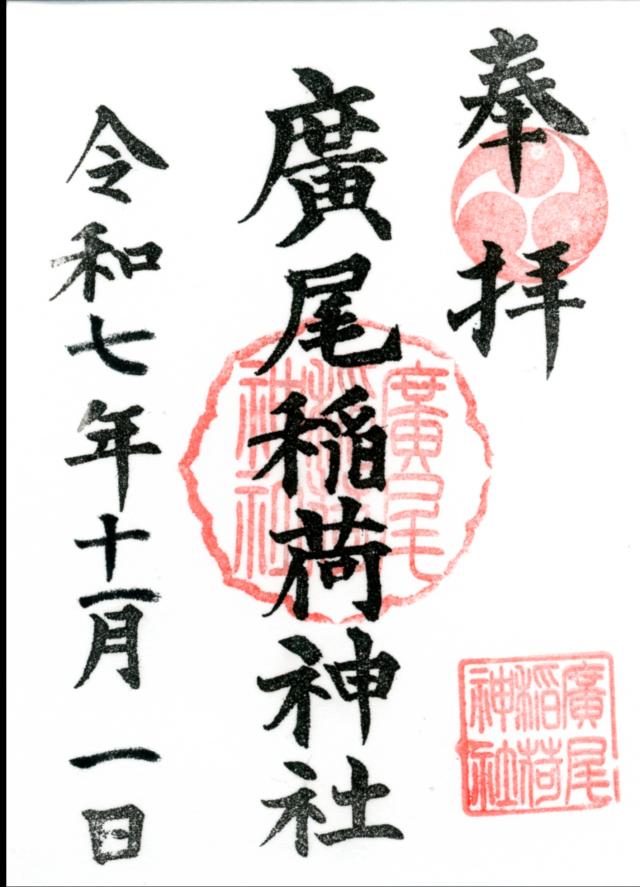 奉拝
廣尾稲荷神社
令和七年十一月一日
廣尾
稲荷
神社
廣尾
稲荷
神社